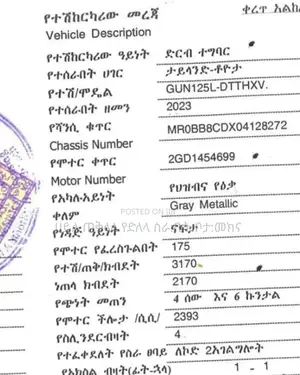 የተሽከርካሪው መረጃ
ቀረጥ
Vehicle Description
የተሽከርካሪው ዓይነት ድርብ ተግባር
የተሰራበት ሀገር ታይላንድ-ቶዮታ
የተሽ/ሞዴል GUN125L-DTTHXV.
የተሰራበት ዘመን 2023
የሻንሲ ቁጥር MR0BB8CDX04128272
Chassis Number
የሞተር ቀጥር 2GD1454699
Motor Number
የአካሉ አይነት የህዝብና የዕቃ
ቀለም Gray Metallic
የነዳጅ ዓይነት ናፍታ
POSTED ON
የሞተር የፈረስጉልበት 175
የተሽ/ጠቅ/ክብደት 3170
ነጠላ ክብደት 2170
የጭነት መጠን 4 ሰው እና 6 ኩንታል
የሞተር ችሎታ /ሲሲ/ 2393
የሲሊንደርብዛት 4
የተፈቀደለት የስራ ፀባይ ለኮድ 2አገልግሎት
የአክስል ብዛት(ፊት-ኋላ) 1 - 1